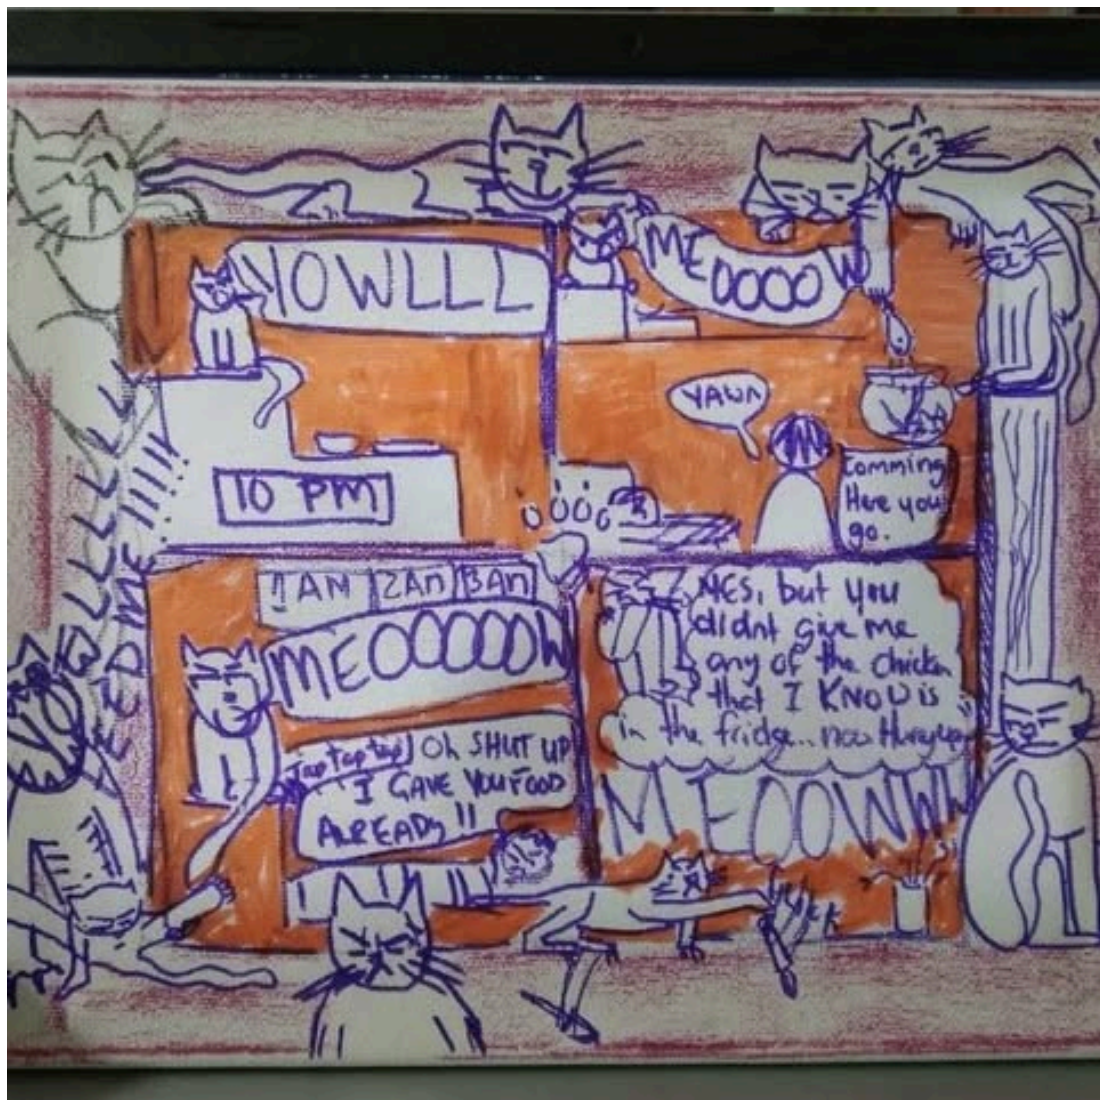 YOWLLL
10 PM
MEOOOOW
YAWN
Comming
Here you
go.
1 AM 2An 3An
MEOOOOOOW
Tap Tap tap
Oh SHUT UP
I GAVE YOU FOOD
ALREADy !!
YES, but you
didnt give me
any of the chicken
that I KNOW is
in the fridge... now Hurry up
MEOOWWW